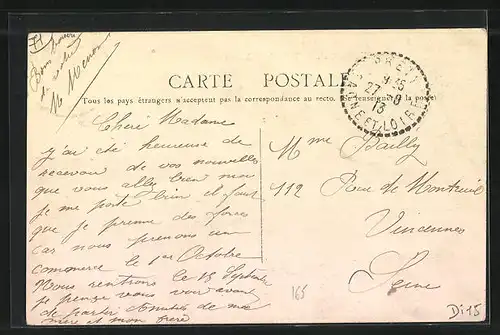 Bons baisers
CARTE POSTALE
Tous les pays étrangers n'acceptent pas la correspondance au recto. Se renseigner à la poste
9 15
27 - 8
13
SAONE ET LOIRE
Chère Madame
J'ai été heureuse de
recevoir de vos nouvelles
que vous allez bien moi
je me porte bien il faut
que je prenne des forces
car nous prenons un
commerce le 1er Octobre
Nous rentrons le 15 Septembre
je pense vous voir avant
de partir Amitiés de ma
mère et mon frère
Mme Bailly
112 Rue de Montreuil
Vincennes
Seine
165
Di15